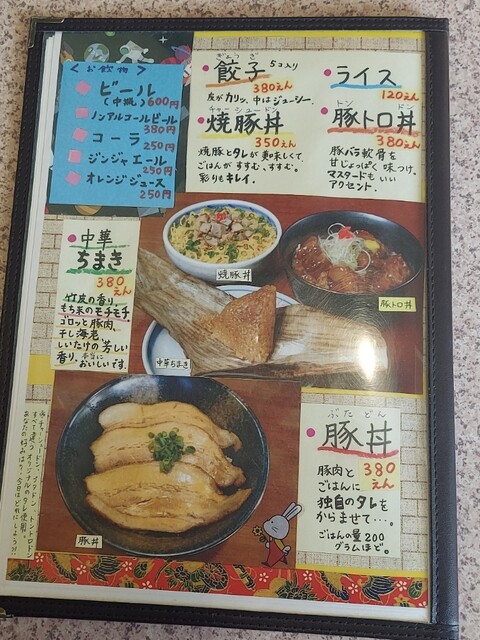 <お飲物>
ビール
(中瓶) 600円
ノンアルコールビール
380円
コーラ
250円
ジンジャエール
250円
オレンジジュース
250円
ぎょうざ
餃子 5コ入り
380えん
皮がカリッ、中はジューシー。
チャーシュードン
焼豚丼
350えん
焼豚とタレが美味しくて、
ごはんがすすむ、すすむ。
彩りもキレイ。
ライス
120えん
トン ドン
豚トロ丼
380えん
豚バラ軟骨を
甘じょっぱく味つけ。
マスタードもいい
アクセント。
焼豚丼
豚トロ丼
中華
ちまき
380
えん
竹皮の香り、
もち米のモチモチ
ゴロッと豚肉、
干し海老、
しいたけの芳しい
香り、本当に
おいしいです。
中華ちまき
ぶたどん
豚丼
豚肉と 380
ごはんに えん
独自のタレを
からませて…。
ごはんの量200
グラムほど。
豚丼
チャーシュードン、ブタドン、トントロドン
すべて違うオリジナルのタレ使用。
あなたの好みは、今日はどれにしよう!!